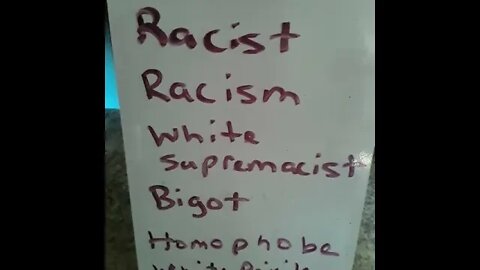 Racist
Racism
White
supremacist
Bigot
Homophobe